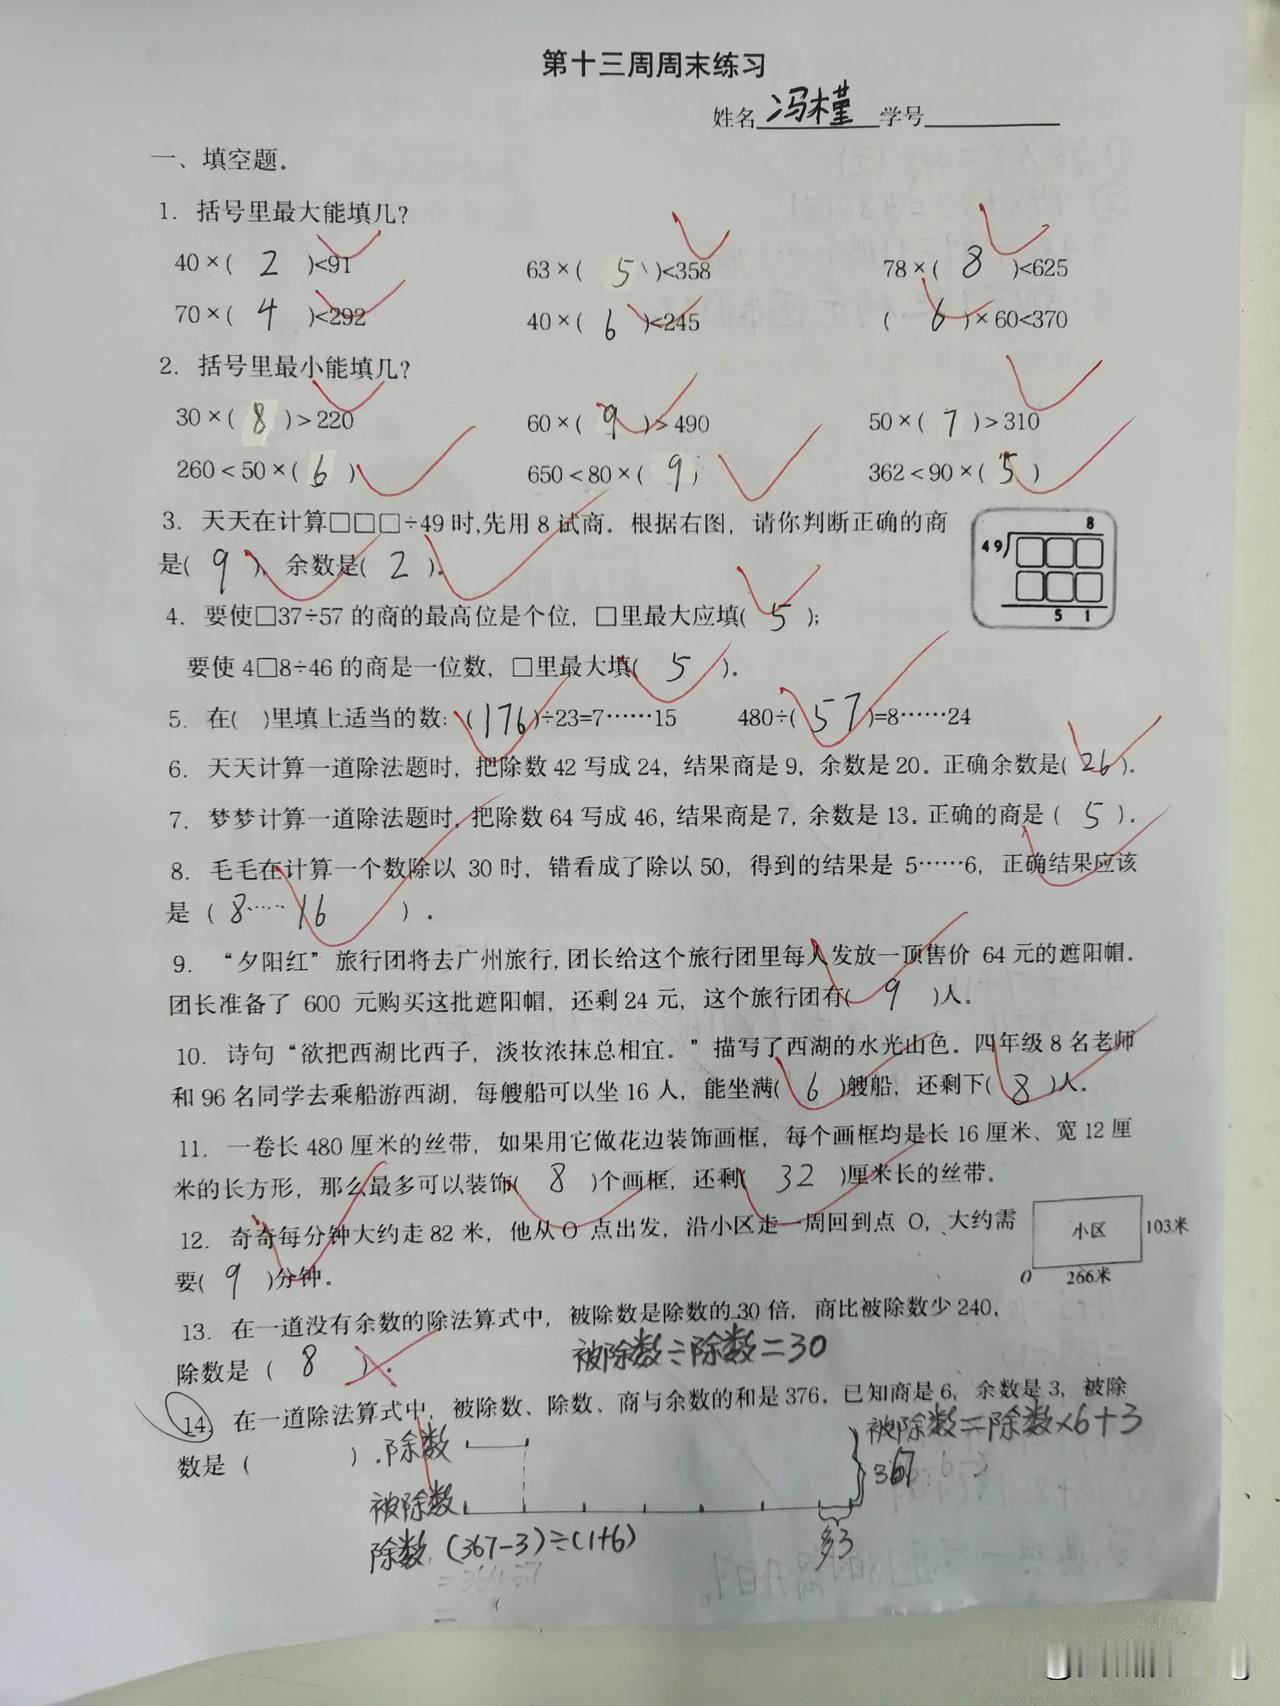 第十三周周末练习
姓名 冯槿 学号
一、填空题.
1. 括号里最大能填几?
40×( 2 )<91 63×( 5 )<358 78×( 8 )<625
70×( 4 )<292 40×( 6 )<245 ( 6 )×60<370
2. 括号里最小能填几?
30×( 8 )>220 60×( 9 )>490 50×( 7 )>310
260<50×( 6 ) 650<80×( 9 ) 362<90×( 5 )
3. 天天在计算□□□÷49时,先用8试商. 根据右图, 请你判断正确的商
是( 9 ), 余数是( 2 ).
8
49
5 1
4. 要使□37÷57的商的最高位是个位, □里最大应填( 5 );
要使4□8÷46的商是一位数, □里最大填( 5 ).
5. 在( )里填上适当的数: (176)÷23=7……15 480÷( 57 )=8……24
6. 天天计算一道除法题时, 把除数42写成24, 结果商是9, 余数是20. 正确余数是( 26 ).
7. 梦梦计算一道除法题时, 把除数64写成46, 结果商是7, 余数是13. 正确的商是( 5 ).
8. 毛毛在计算一个数除以30时, 错看成了除以50, 得到的结果是5……6, 正确结果应该
是( 8……16 ).
9. “夕阳红”旅行团将去广州旅行, 团长给这个旅行团里每人发放一顶售价64元的遮阳帽.
团长准备了600元购买这批遮阳帽, 还剩24元, 这个旅行团有( 9 )人.
10. 诗句“欲把西湖比西子, 淡妆浓抹总相宜.”描写了西湖的水光山色. 四年级8名老师
和96名同学去乘船游西湖, 每艘船可以坐16人, 能坐满( 6 )艘船, 还剩下( 8 )人.
11. 一卷长480厘米的丝带, 如果用它做花边装饰画框, 每个画框均是长16厘米、宽12厘
米的长方形, 那么最多可以装饰( 8 )个画框, 还剩( 32 )厘米长的丝带.
12. 奇奇每分钟大约走82米, 他从O点出发, 沿小区走一周回到点O, 大约需
要( 9 )分钟.
小区 103米
O 266米
13. 在一道没有余数的除法算式中, 被除数是除数的30倍, 商比被除数少240,
除数是( 8 ).
被除数÷除数=30
14. 在一道除法算式中, 被除数、除数、商与余数的和是376. 已知商是6, 余数是3, 被除
数是( ).
被除数=除数×6+3
除数
367
被除数
多3
除数 (367-3)÷(1+6)